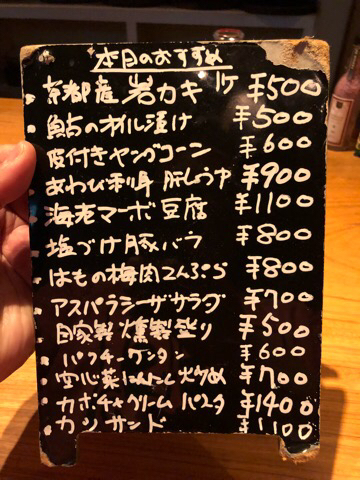 本日のおすすめ
京都産 岩カキ 1ケ ¥500
鮎のオイル漬け ¥500
皮付きヤングコーン ¥600
あわび刺身 肝しょうゆ ¥900
海老マーボ豆腐 ¥1100
塩づけ豚バラ ¥800
はもの梅肉天ぷら ¥800
アスパラシーザサラダ ¥700
自家製燻製盛り ¥500
パクチーワンタン ¥600
空心菜にんにく炒め ¥700
カボチャクリームパスタ ¥1400
カツサンド ¥1100